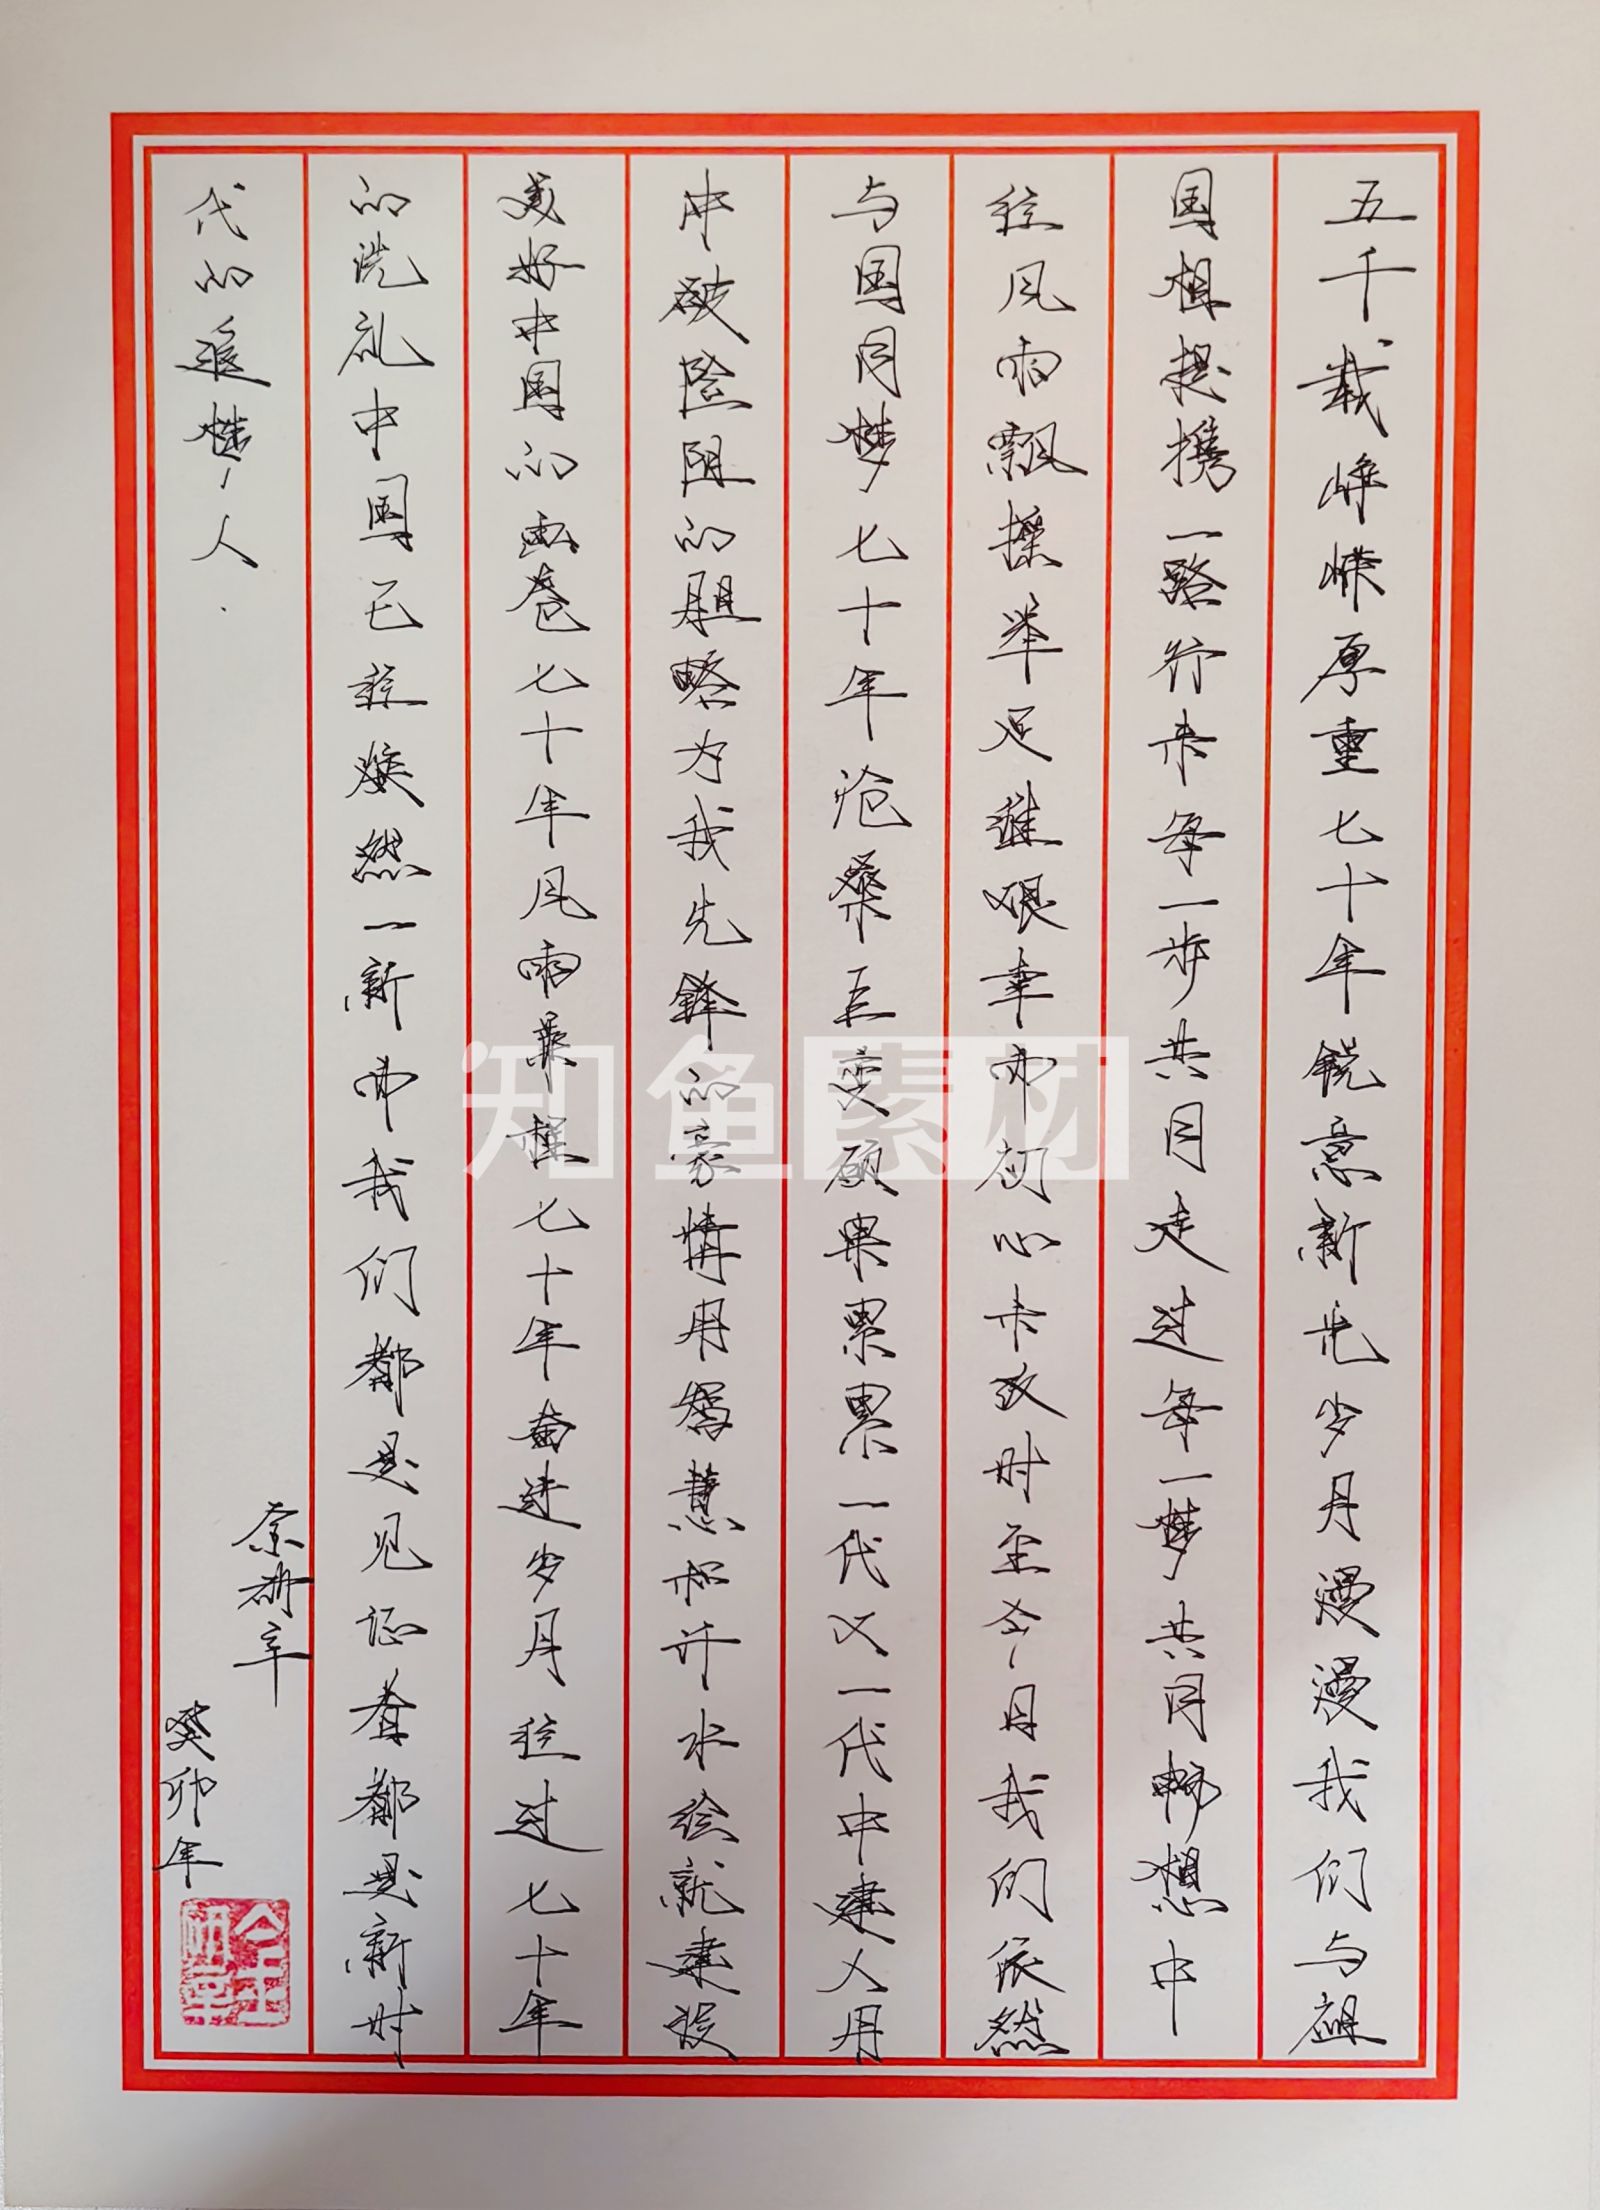 五千载峥嵘厚重七十年锐意新光岁月漫漫我们与祖
国相提携一路行来每一步共同走过每一梦共同畅想中
经风雨飘摇举足进艰辛中初心未改时至今日我们依然
与国同梦七十年沧桑巨变硕果累累一代又一代中建人用
中破险阻的胆略为我先锋的豪情用智慧和汗水绘就建设
美好中国的画卷七十年风雨兼程七十年奋进岁月经过七十年
的洗礼中国已经焕然一新而我们都是见证者都是新时
代的追梦人.
癸卯年
知鱼素材